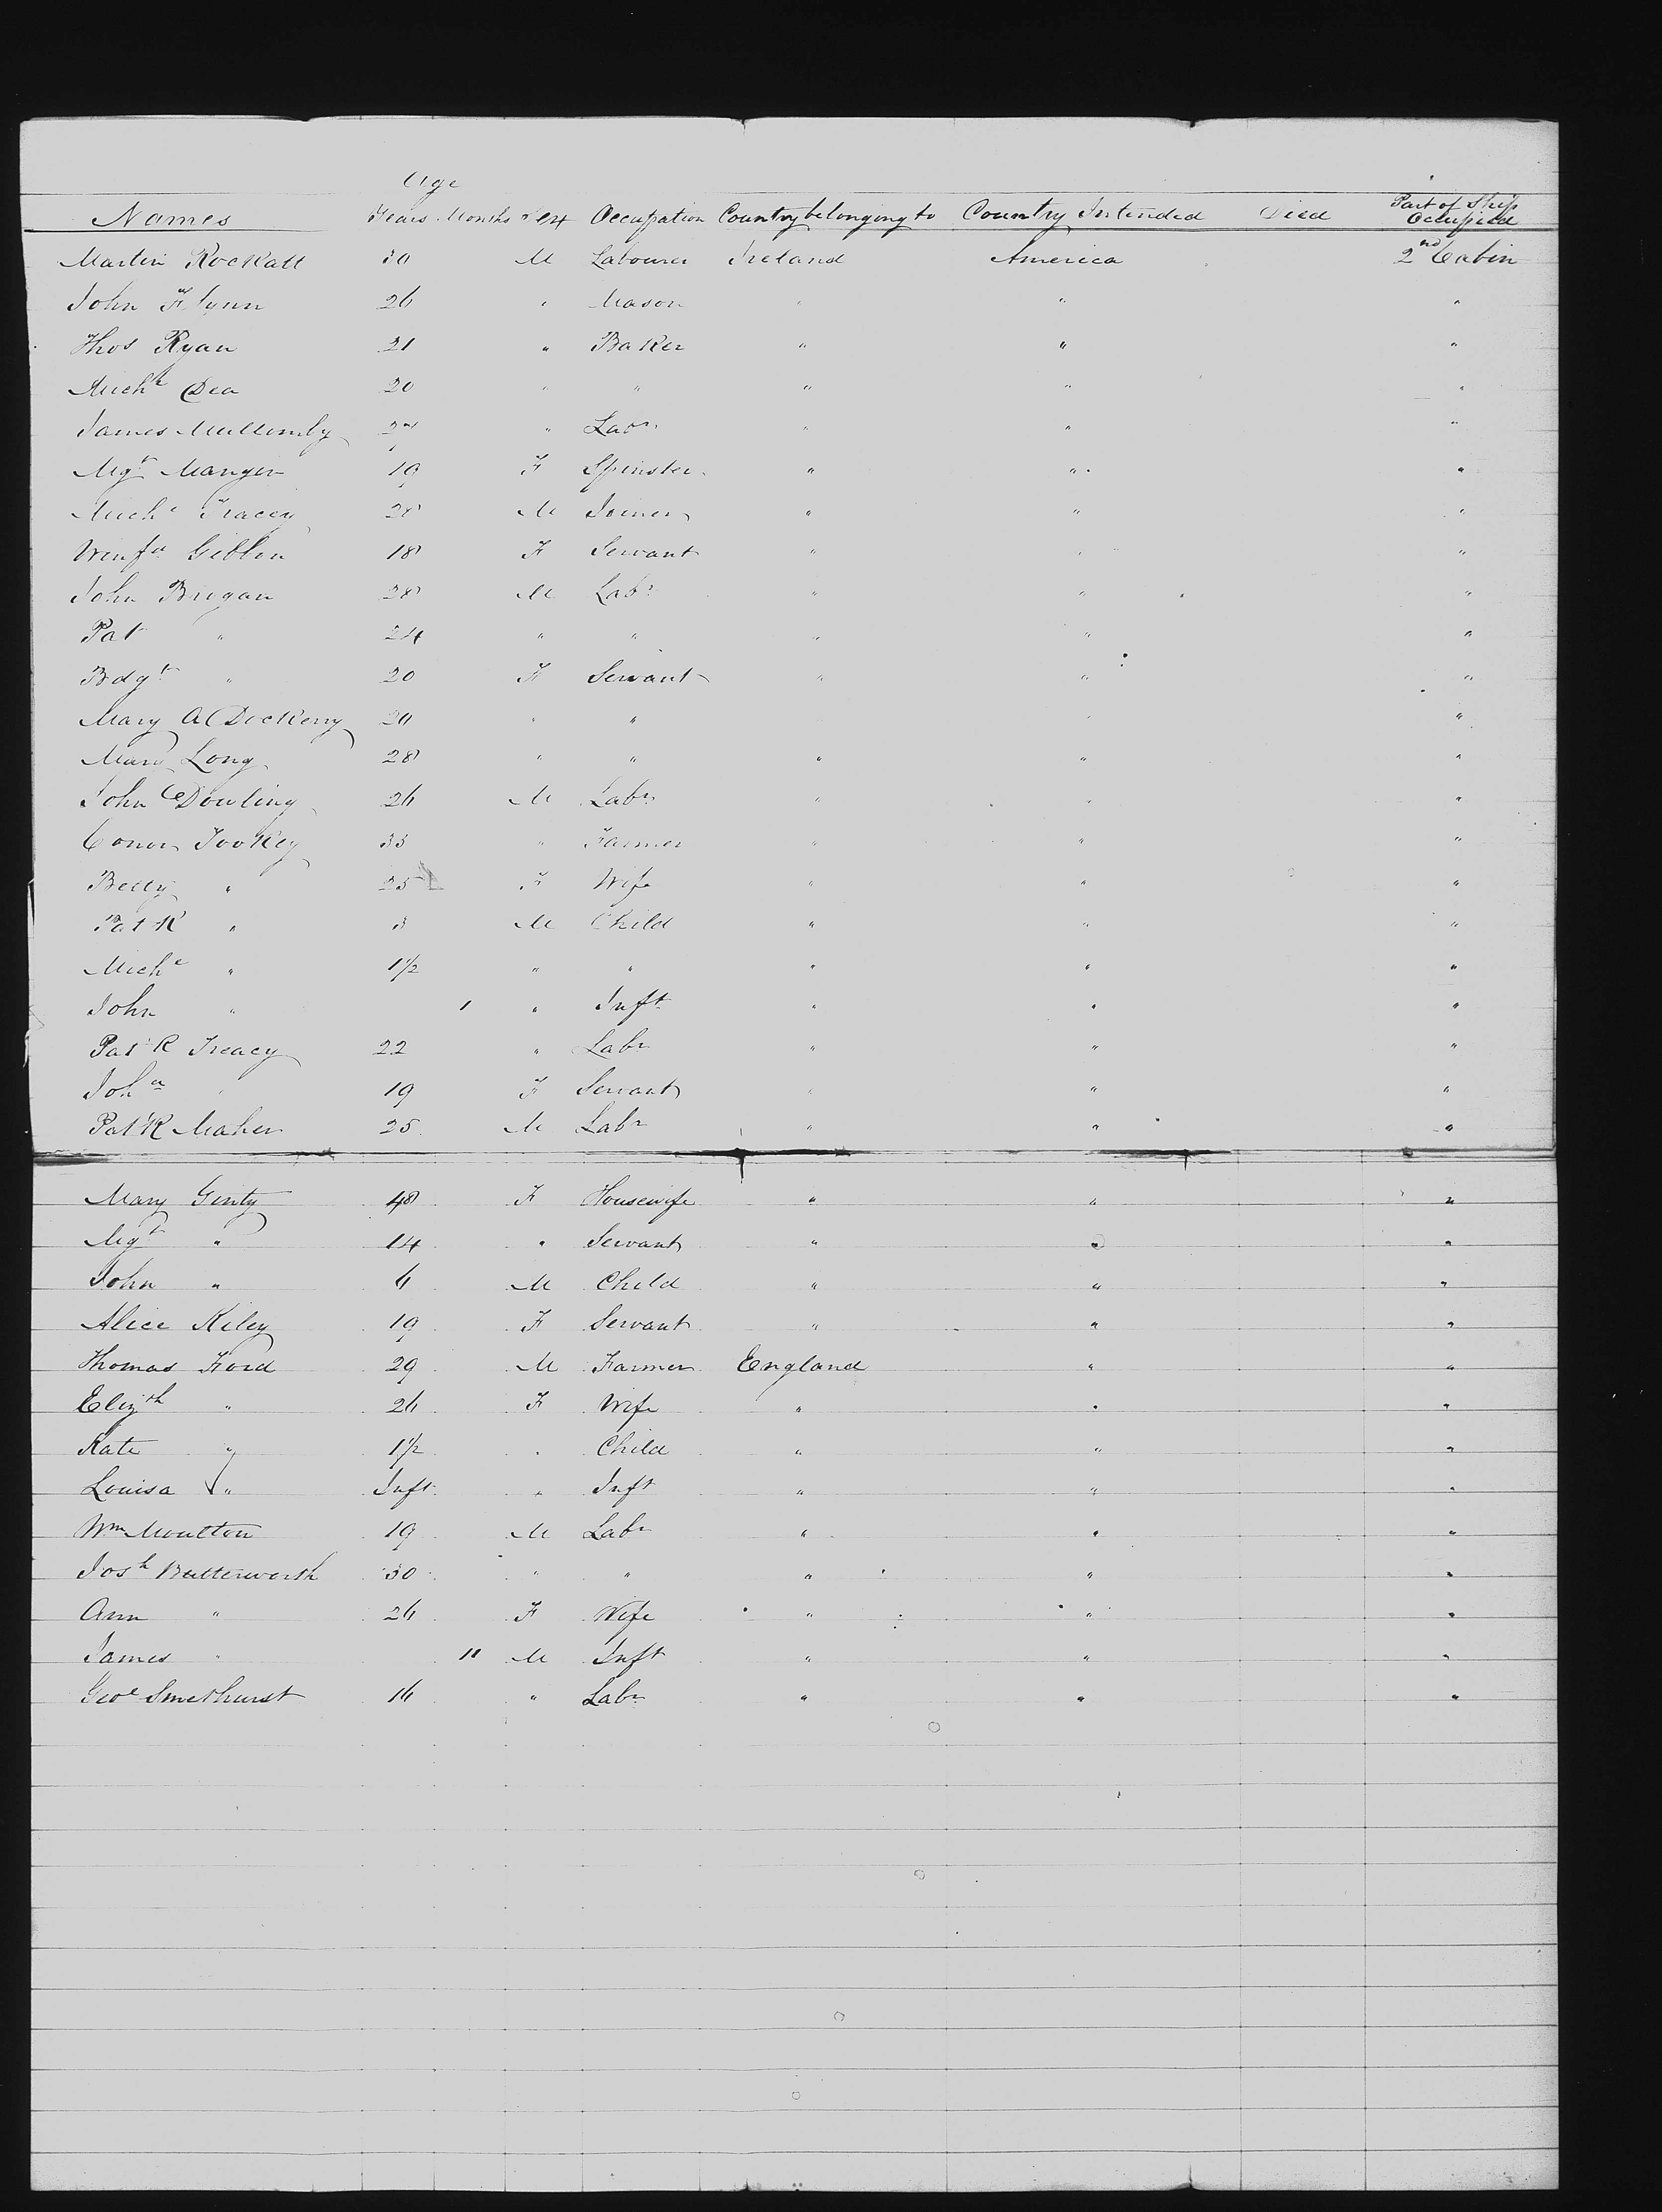 Age
Names Years Months Sex Occupation Country belonging to Country Intended Died Part of Ship Occupied
Martin Rockatt 30 M Labourer Ireland America 2nd Cabin
John Flynn 26 " Mason " " "
Thos Ryan 21 " Baker " " "
Michl Dea 20 " " " " "
James 27 " Labr " " "
Mgt Mangen 19 F Spinster " " "
Michl Tracey 28 M Joiner " " "
Winfd Giblen 18 F Servant " " "
John Brogan 28 M Labr " " "
Pat " 24 " " " " "
Bdgt " 20 F Servant " " "
Mary A Dockerry 20 " " " "
Mary Long 28 " " " " "
John Dowling 26 M Labr " " "
Conor Tookey 33 " Farmer " " "
Betty " 25 F Wife " " "
Patk " 3 M Child " " "
Michl " 1½ " " " " "
John " 1 " Inft " " "
Patk Treacy 22 " Labr " " "
Joha " 19 F Servant " " "
Patk Maher 25 M Labr " " "
Mary Ginty 48 F Housewife " " "
Mgt " 14 " Servant " " "
John " 6 M Child " " "
Alice Riley 19 F Servant " " "
Thomas Ford 29 M Farmer England " "
Elizth " 26 F Wife " " "
Kate " 1½ " Child " " "
Louisa " Inft " Inft " " "
Wm Moulton 19 M Labr " " "
Josh Butterworth 30 " " " " "
Ann " 26 F Wife " " "
James " 11 M Inft " " "
Geoe Smethurst 16 " Labr " " "